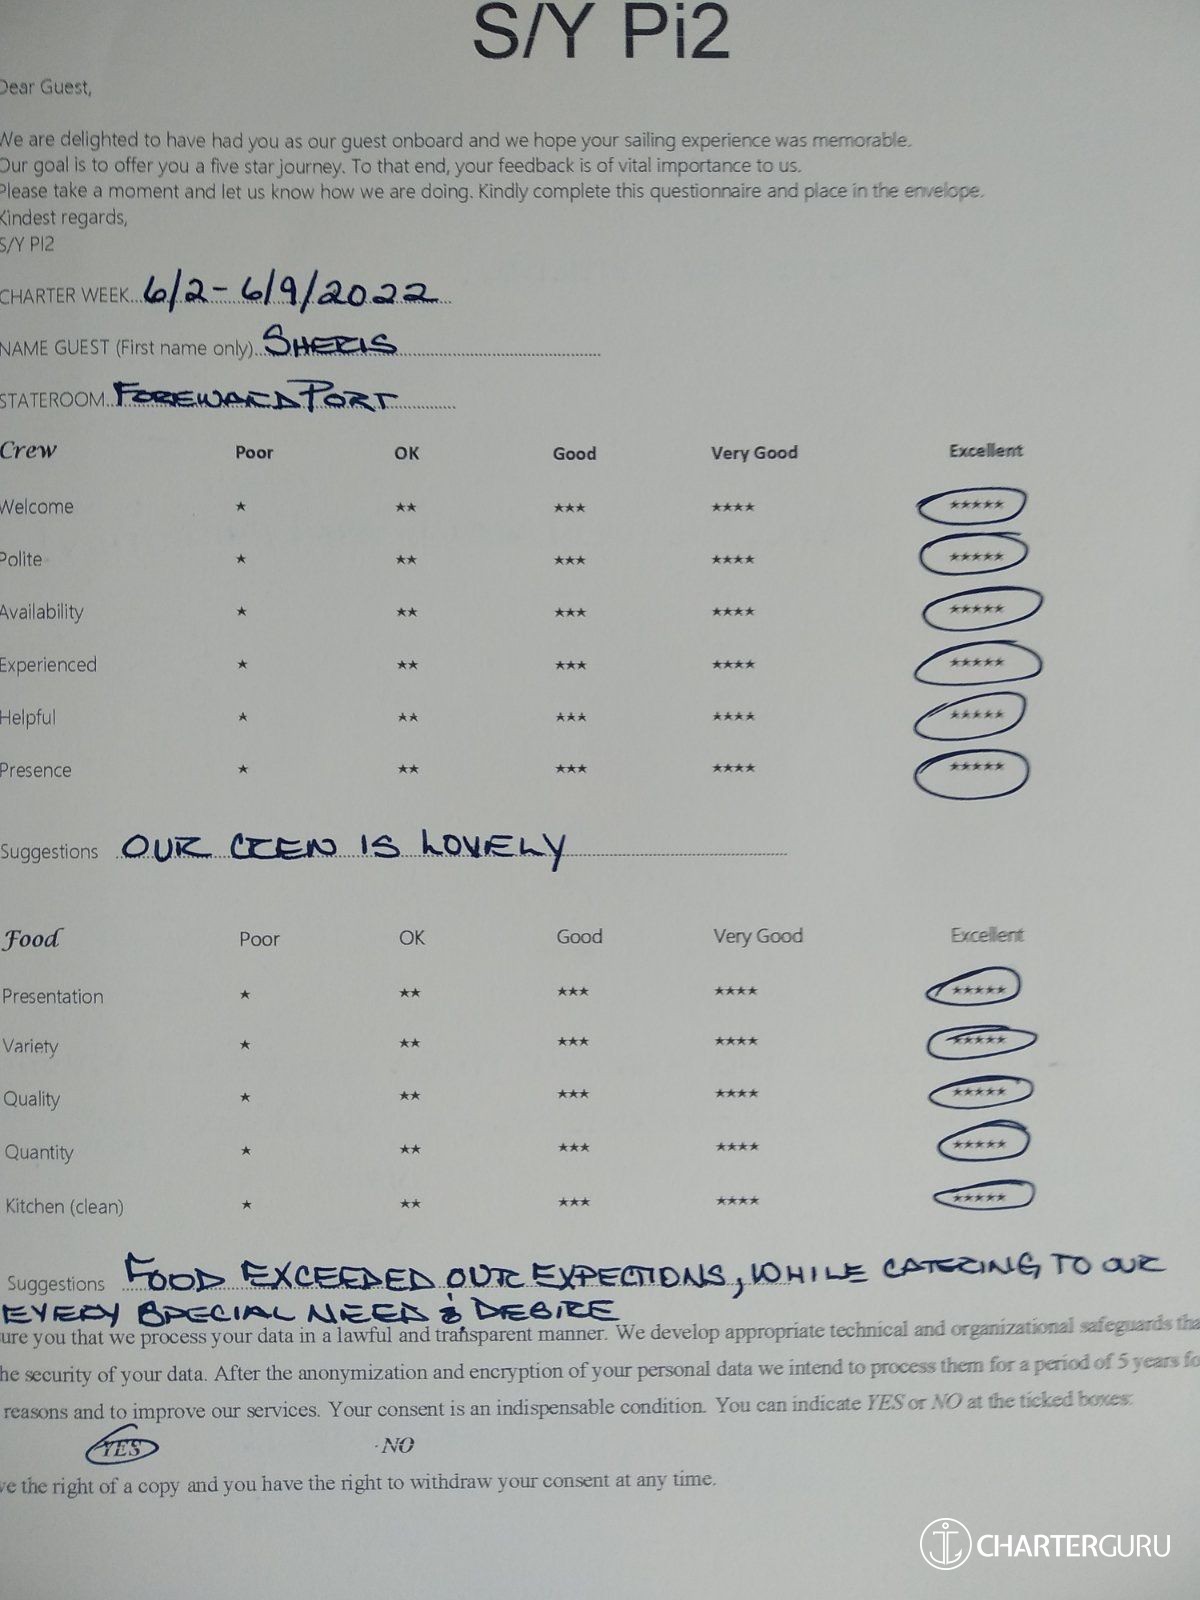 S/Y Pi2
Dear Guest,
We are delighted to have had you as our guest onboard and we hope your sailing experience was memorable.
Our goal is to offer you a five star journey. To that end, your feedback is of vital importance to us.
Please take a moment and let us know how we are doing. Kindly complete this questionnaire and place in the envelope.
Kindest regards,
S/Y PI2
CHARTER WEEK 6/2-6/9/2022
NAME GUEST (First name only)
STATEROOM FOREWARD PORT
Crew Poor OK Good Very Good Excellent
Welcome ★ ★★ ★★★ ★★★★ ★★★★★
Polite ★ ★★ ★★★ ★★★★ ★★★★★
Availability ★ ★★ ★★★ ★★★★ ★★★★★
Experienced ★ ★★ ★★★ ★★★★ ★★★★★
Helpful ★ ★★ ★★★ ★★★★ ★★★★★
Presence ★ ★★ ★★★ ★★★★ ★★★★★
Suggestions OUR CREW IS LOVELY
Food Poor OK Good Very Good Excellent
Presentation ★ ★★ ★★★ ★★★★ ★★★★★
Variety ★ ★★ ★★★ ★★★★ ★★★★★
Quality ★ ★★ ★★★ ★★★★ ★★★★★
Quantity ★ ★★ ★★★ ★★★★ ★★★★★
Kitchen (clean) ★ ★★ ★★★ ★★★★ ★★★★★
Suggestions FOOD EXCEEDED OUR EXPECTIONS, WHILE CATERING TO OUR
EVERY SPECIAL NEED & DESIRE
ure you that we process your data in a lawful and transparent manner. We develop appropriate technical and organizational safeguards tha
he security of your data. After the anonymization and encryption of your personal data we intend to process them for a period of 5 years fo
reasons and to improve our services. Your consent is an indispensable condition. You can indicate YES or NO at the ticked boxes:
YES ·NO
ve the right of a copy and you have the right to withdraw your consent at any time.
CHARTERGURU